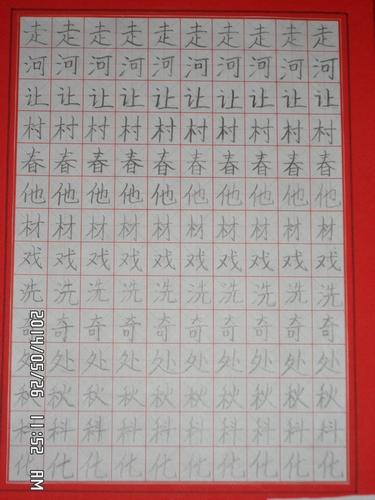 走走走走走走走走走走
河河河河河河河河河河
让让让让让让让让让让
村村村村村村村村村村
春春春春春春春春春春
他他他他他他他他他他
材材材材材材材材材材
戏戏戏戏戏戏戏戏戏戏
洗洗洗洗洗洗洗洗洗洗
奇奇奇奇奇奇奇奇奇奇
处处处处处处处处处处
秋秋秋秋秋秋秋秋秋秋
科科科科科科科科科科
化化化化化化化化化化
2014/05/26 11:52 AM